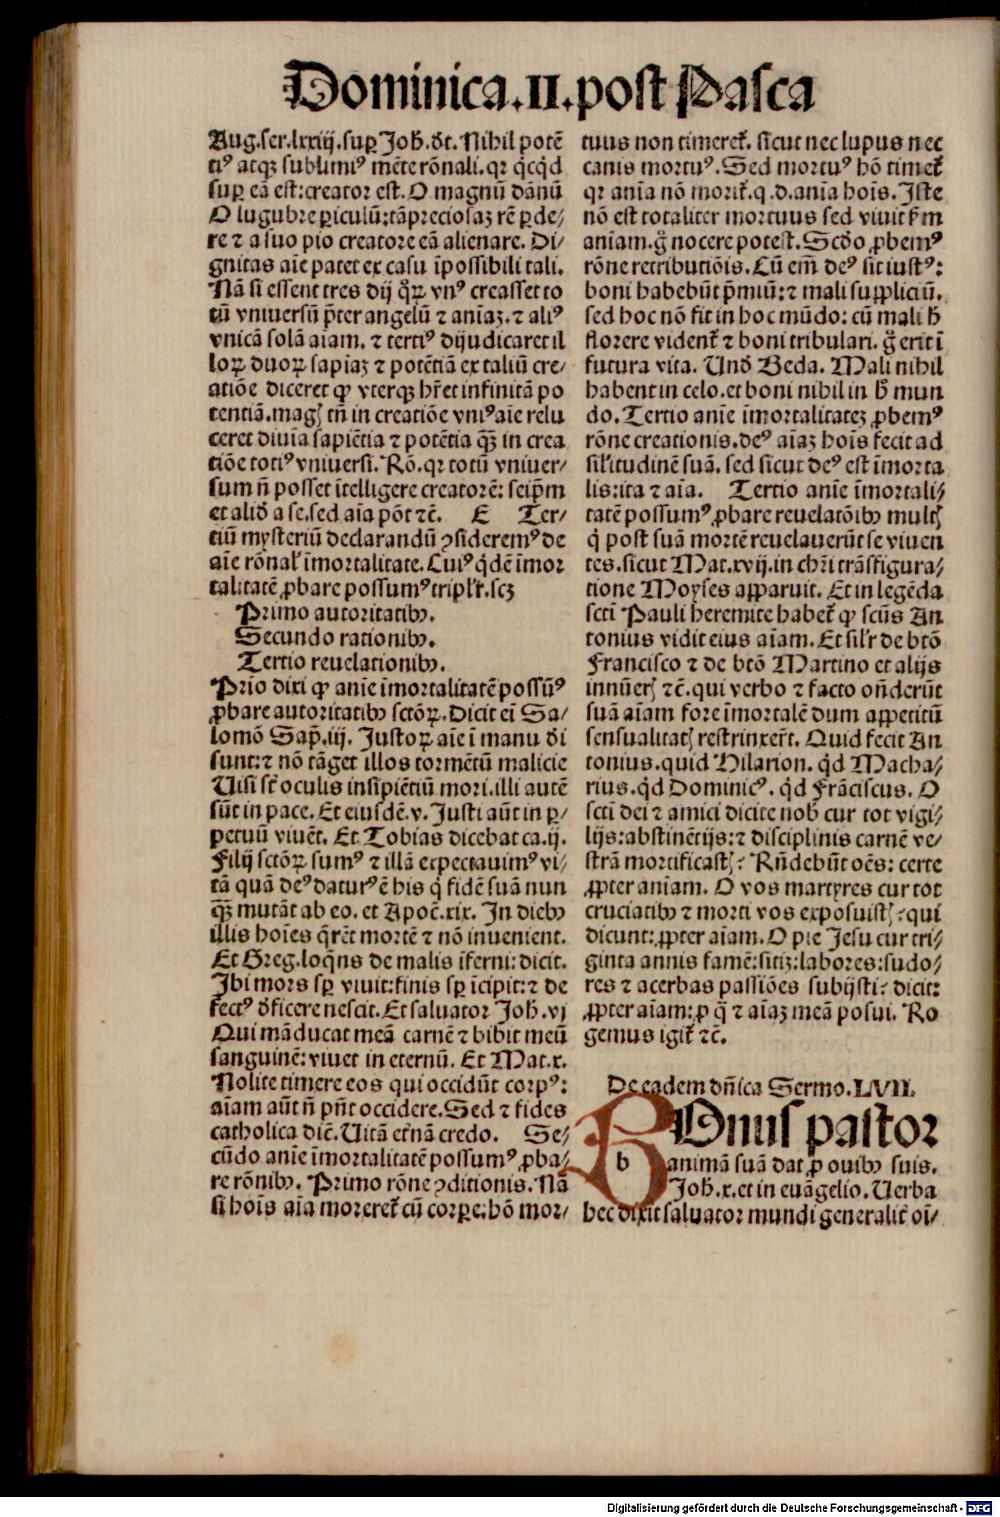 Dominica.II.post Pasca
Aug.ser.lxxiij.suꝑ Joh̄.d̄t. Nihil potē
tiꝰ atqꝫ sublimiꝰ mēte rōnali.qꝛ q̇cq̇d
suꝑ eā est:creator est. O magnū dānū
O lugubre ꝑiculū:tāpreciosaꝫ rē ꝑde/
re ⁊ a suo pio creatore eā alienare. Di/
gnitas aīe patet ex casu īpossibili tali.
Nā si essent tres dij q̄ꝝ vnꝰ creasset to
tū vniuersū p̄ter angelū ⁊ anīaꝫ.⁊ aliꝰ
vnicā solā aīam. ⁊ tertiꝰ dijudicaret il
loꝝ duoꝝ sapīaꝫ ⁊ potētiā ex taliū cre/
atiōe diceret ꝙ vterqꝫ hr̄et infinitā po
tentiā.magꝭ tn̄ in creatiōe vniꝰaīe relu
ceret diuīa sapiētia ⁊ potētia q̄ꝫ in crea
tiōe totiꝰ vniuersi. Rō.qꝛ totū vniuer/
sum n̄ posset ītelligere creatorē: seip̄m
et aliđ a se.sed aīa pōt ⁊c̄. E Ter/
tiū mysteriū declarandū ꝯsideremꝰ de
aīe rōnal̄ īmortalitate. Cuiꝰ q̇dē īmor
talitatē ꝓbare possumꝰ tripl̄r.scꝫ
Primo autoritatibꝰ.
Secundo rationibꝰ.
Tertio reuelationibꝰ.
Prīo dixi ꝙ anīe īmortalitatē possūꝰ
ꝓbare autoritatibꝰ sctōꝝ. Dicit eī Sa/
lomō Sap̄.iij. Justoꝝ aīe ī manu dī
sunt:⁊ nō tāget illos tormētū malicie
Uisi st̄ oculis insipiētiū mori.illi autē
sūt in pace. Et eiusdē.v. Justi aūt in ꝑ/
petuū viuēt. Et Tobias dicebat ca.ij.
Filij sctōꝝ sumꝰ ⁊ illā expectauimꝰ vi/
tā quā deꝰ daturꝰ ē his q̇ fidē suā nun
q̄ꝫ mutāt ab eo. et Apoc̄.xix. In diebꝰ
illis hoīes q̄rēt mortē ⁊ nō inuenient.
Et Greg.loq̄ns de malis īferni: dicit.
Ibi mors sꝑ viuit:finis sꝑ īcipit:⁊ de
fectꝰ đficere nescit. Et saluator Joh̄.vj
Qui māducat meā carnē ⁊ bibit meū
sanguinē: viuet in eternū. Et Mat.x.
Nolite timere eos qui occidūt corpꝰ:
aīam aūt n̄ pn̄t occidere. Sed ⁊ fides
catholica dic̄. Uitā et̄nā credo. Se/
cūdo anīe īmortalitatē possumꝰ ꝓba/
re rōnibꝰ. Primo rōne ꝯditionis. Nā
si hoīs aīa moreret̄ cū corꝑe.hō mor/
tuus non timeret̄. sicut nec lupus nec
canis mortuꝰ. Sed mortuꝰ hō timet̄
qꝛ anīa nō morit̄.q.d.anīa hoīs. Iste
nō est totaliter mortuus sed viuit f̄m
anīam.g̊ nocere potest. Scđo ꝓbemꝰ
rōne retributiōis. Cū em̄ deꝰ sit iustꝰ:
boni habebūt p̄miū:⁊ mali suppliciū.
sed hoc nō fit in hoc mūdo: cū mali h̄
florere vident̄ ⁊ boni tribulari. g̊ erit ī
futura vita. Unđ Beda. Mali nihil
habent in celo.et boni nihil in h̄ mun
do. Tertio anīe īmortalitateꝫ ꝓbemꝰ
rōne creationis.deꝰ aīaꝫ hoīs fecit ad
sil̄itudinē suā. sed sicut deꝰ est īmorta
lis:ita ⁊ aīa. Tertio anīe īmortali/
tatē possumꝰ ꝓbare reuelatōibꝰ multꝭ
q̇ post suā mortē reuelauerūt se viuen
tes. sicut Mat.xvij.in chr̄i trāsfigura/
tione Moyses apparuit. Et in legēda
scti Pauli heremite habet̄ ꝙ sctūs An
tonius vidit eius aīam. Et sil̄r de btō
Francisco ⁊ de btō Martino et alijs
innūerꝭ ⁊c̄. qui verbo ⁊ facto on̄derūt
suā aīam fore īmortalē dum appetitū
sensualitatꝭ restrinxer̄t. Quid fecit An
tonius.quid Hilarion. q̇d Macha/
rius.q̇d Dominicꝰ. q̇d Frāciscus. O
scti dei ⁊ amici dicite nob̄ cur tot vigi/
lijs:abstinētijs:⁊ disciplinis carnē ve/
strā mortificastꝭ? Rn̄debūt oēs: certe
ꝓpter anīam. O vos martyres cur tot
cruciatibꝰ ⁊ morti vos exposuistꝭ? qui
dicunt:ꝓpter aīam. O pie Jesu cur tri/
ginta annis famē:sitiꝫ:labores:sudo/
res ⁊ acerbas passiōes subijsti? dicit:
ꝓpter aīam:ꝓ q̄ ⁊ aīaꝫ meā posui. Ro
gemus igit̄ ⁊c̄.
De eadem dn̄ica Sermo.LVII.
b
BOnus pastor
animā suā dat ꝓ ouibꝰ suis.
Joh̄.x.et in euāgelio. Uerba
hec dixit saluator mundi generalit̄ oī/
Digitalisierung gefördert durch die Deutsche Forschungsgemeinschaft - DFG